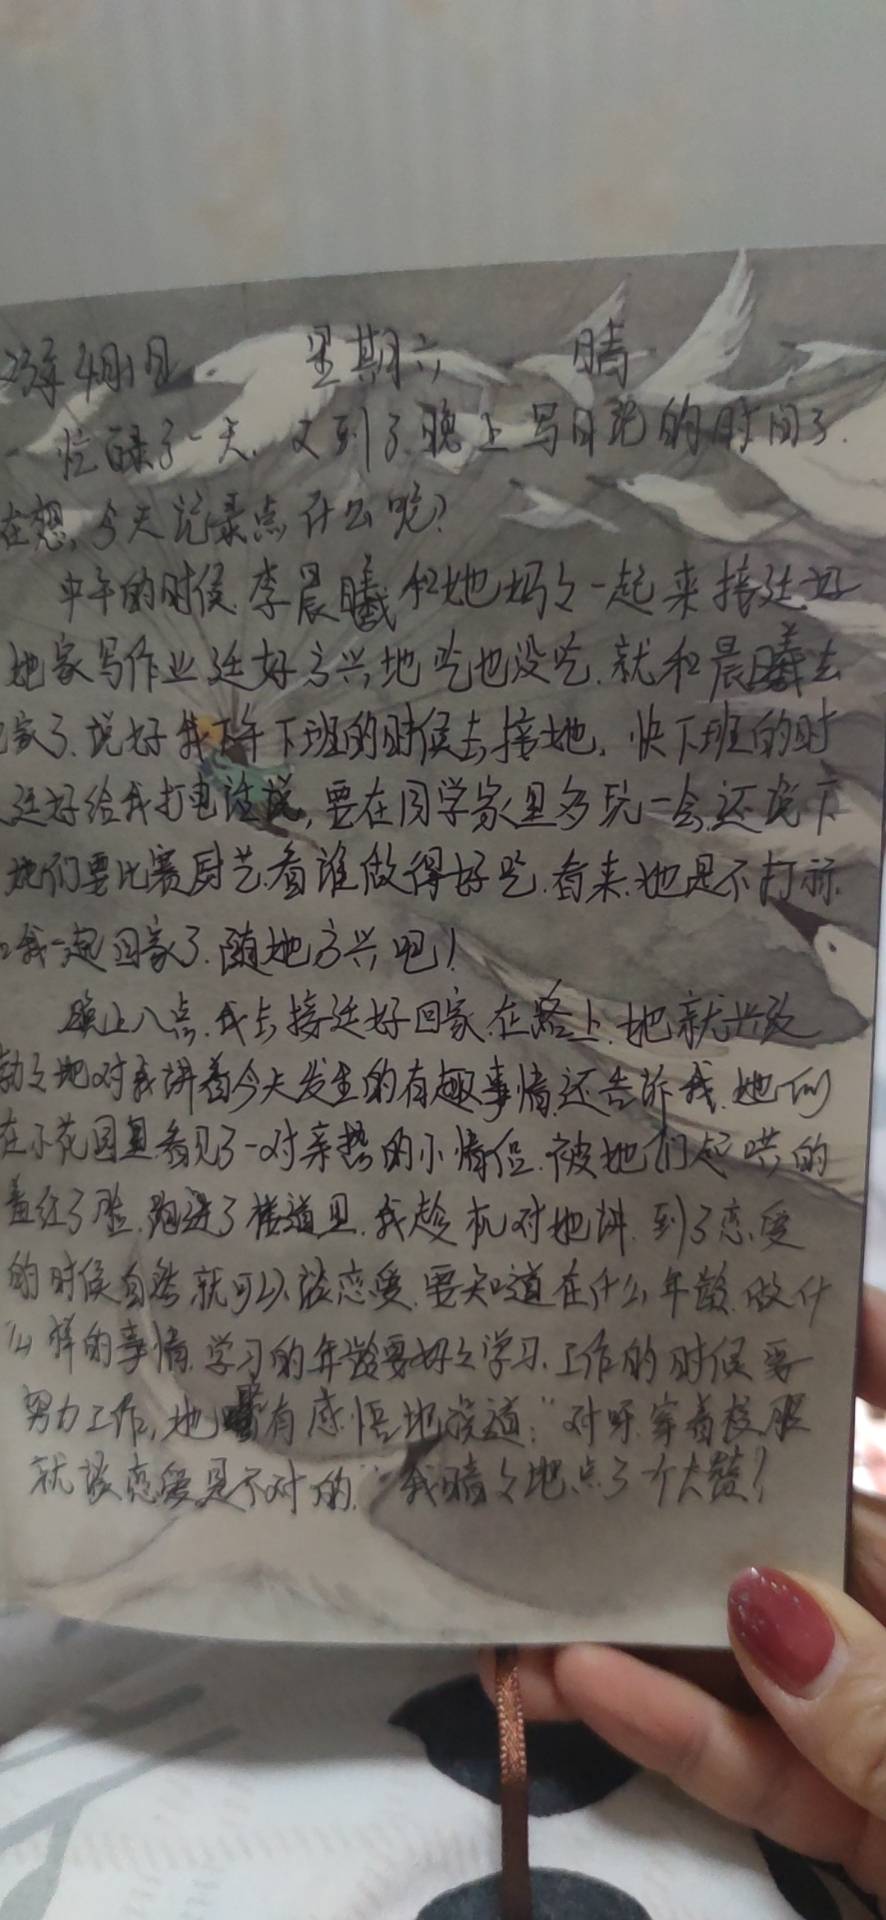 23年4月1日 星期六 晴
忙碌了一天,又到了晚上写日记的时间了.
在想,今天记录点什么呢?
中午的时候,李晨曦和她妈々一起来接廷好
她家写作业,廷好高兴地吃也没吃,就和晨曦去
家了,说好我下午下班的时候去接她,快下班的时
廷好给我打电话说,要在同学家里多玩一会,还说
她们要比赛厨艺,看谁做得好吃,看来,她是不打算
我一起回家了,随她高兴吧!
晚上八点,我去接廷好回家,在路上,她就兴致
勃々地对我讲着今天发生的有趣事情,还告诉我,她们
在小花园里看见了一对亲热的小情侣,被她们起哄的
羞红了脸,跑进了楼道里,我趁机对她讲,到了恋爱
的时候自然就可以谈恋爱,要知道在什么年龄,做什
么样的事情,学习的年龄要好々学习,工作的时候要
努力工作,她有感悟地说道:“对呀,穿着校服
就谈恋爱是不对的.”我暗々地点了个大赞!